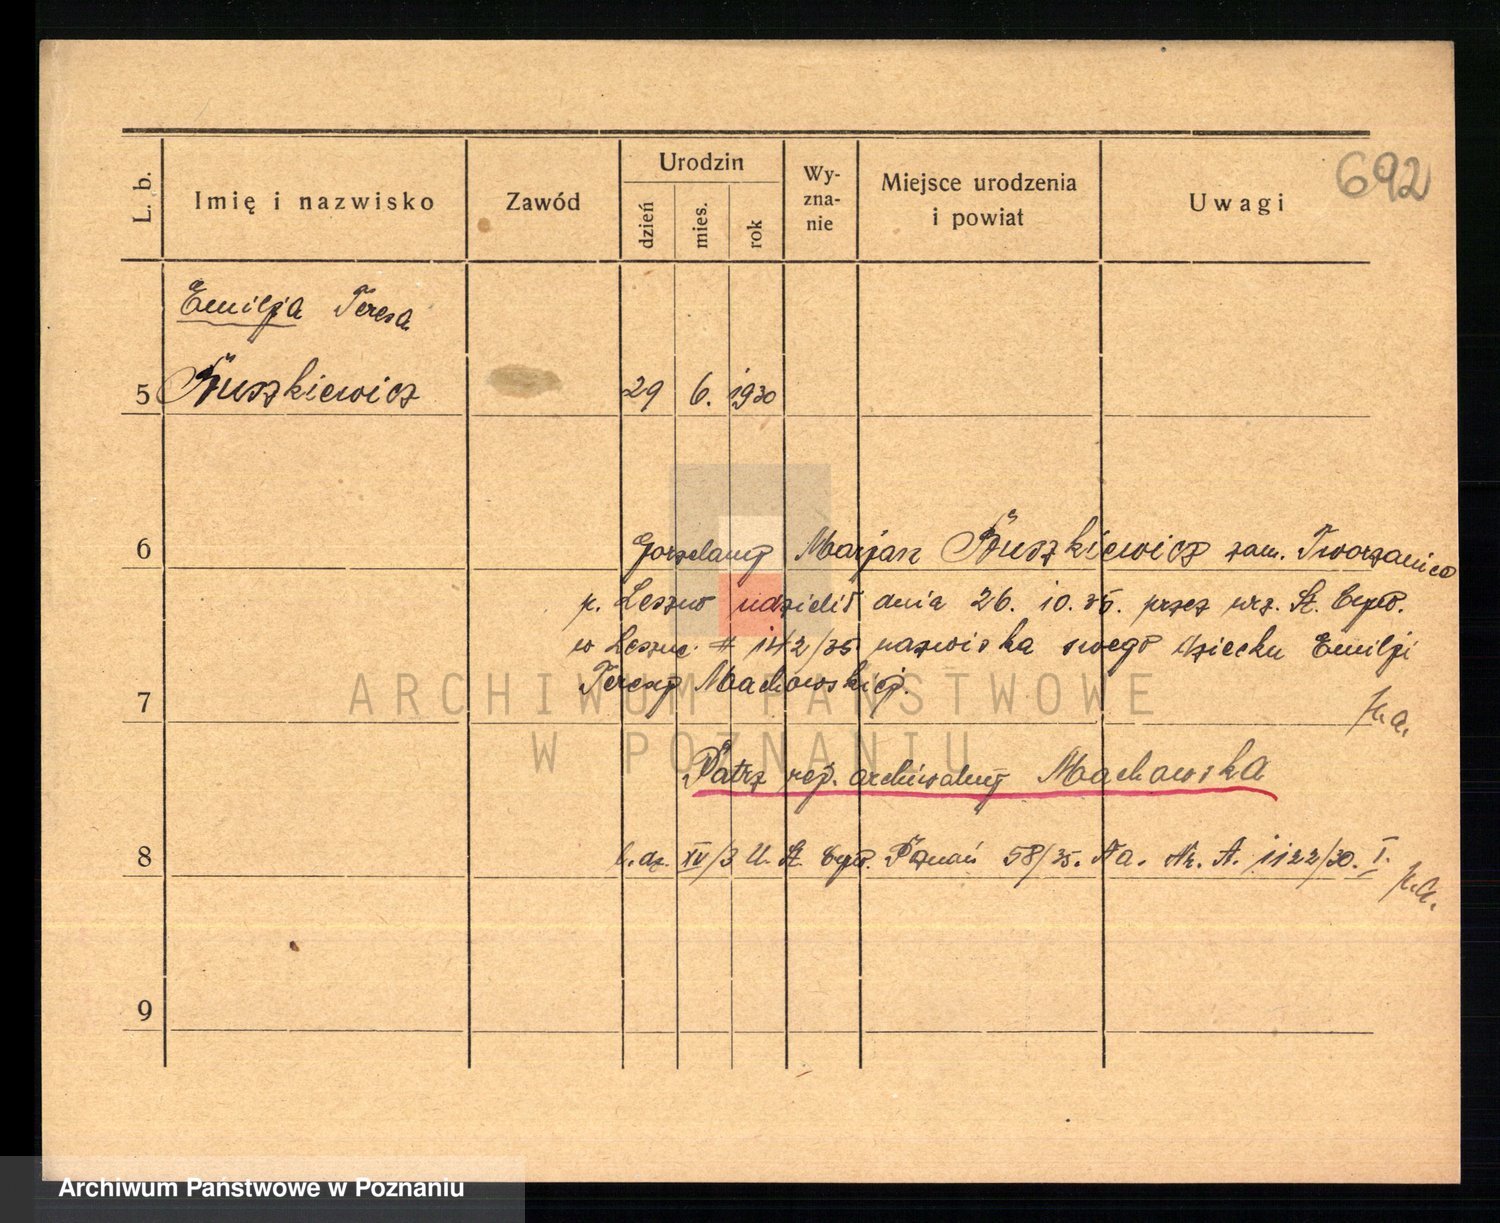 692
L. b.
Imię i nazwisko
Zawód
Urodzin
dzień
mies.
rok
Wy-
zna-
nie
Miejsce urodzenia
i powiat
Uwagi
Emilja Teresa
5 Buszkiewicz 29 6. 1930
6 Gorzelany Marjan Buszkiewicz zam. Tworzanice
p. Leszno udzielił dnia 26. 10. 35. przez urz. St. Cyw.
w Leszne # 142/35 nazwiska swego dziecku Emilji
Teresy Machowskiej.
7
Patrz rep. archiwalny Machowska
8 l. dz. IV/3 U. St. Cyw. Poznań 58/35. Aa. Nr. A. 1122/30. I.
9
ARCHIWUM PAŃSTWOWE
W POZNANIU
Archiwum Państwowe w Poznaniu